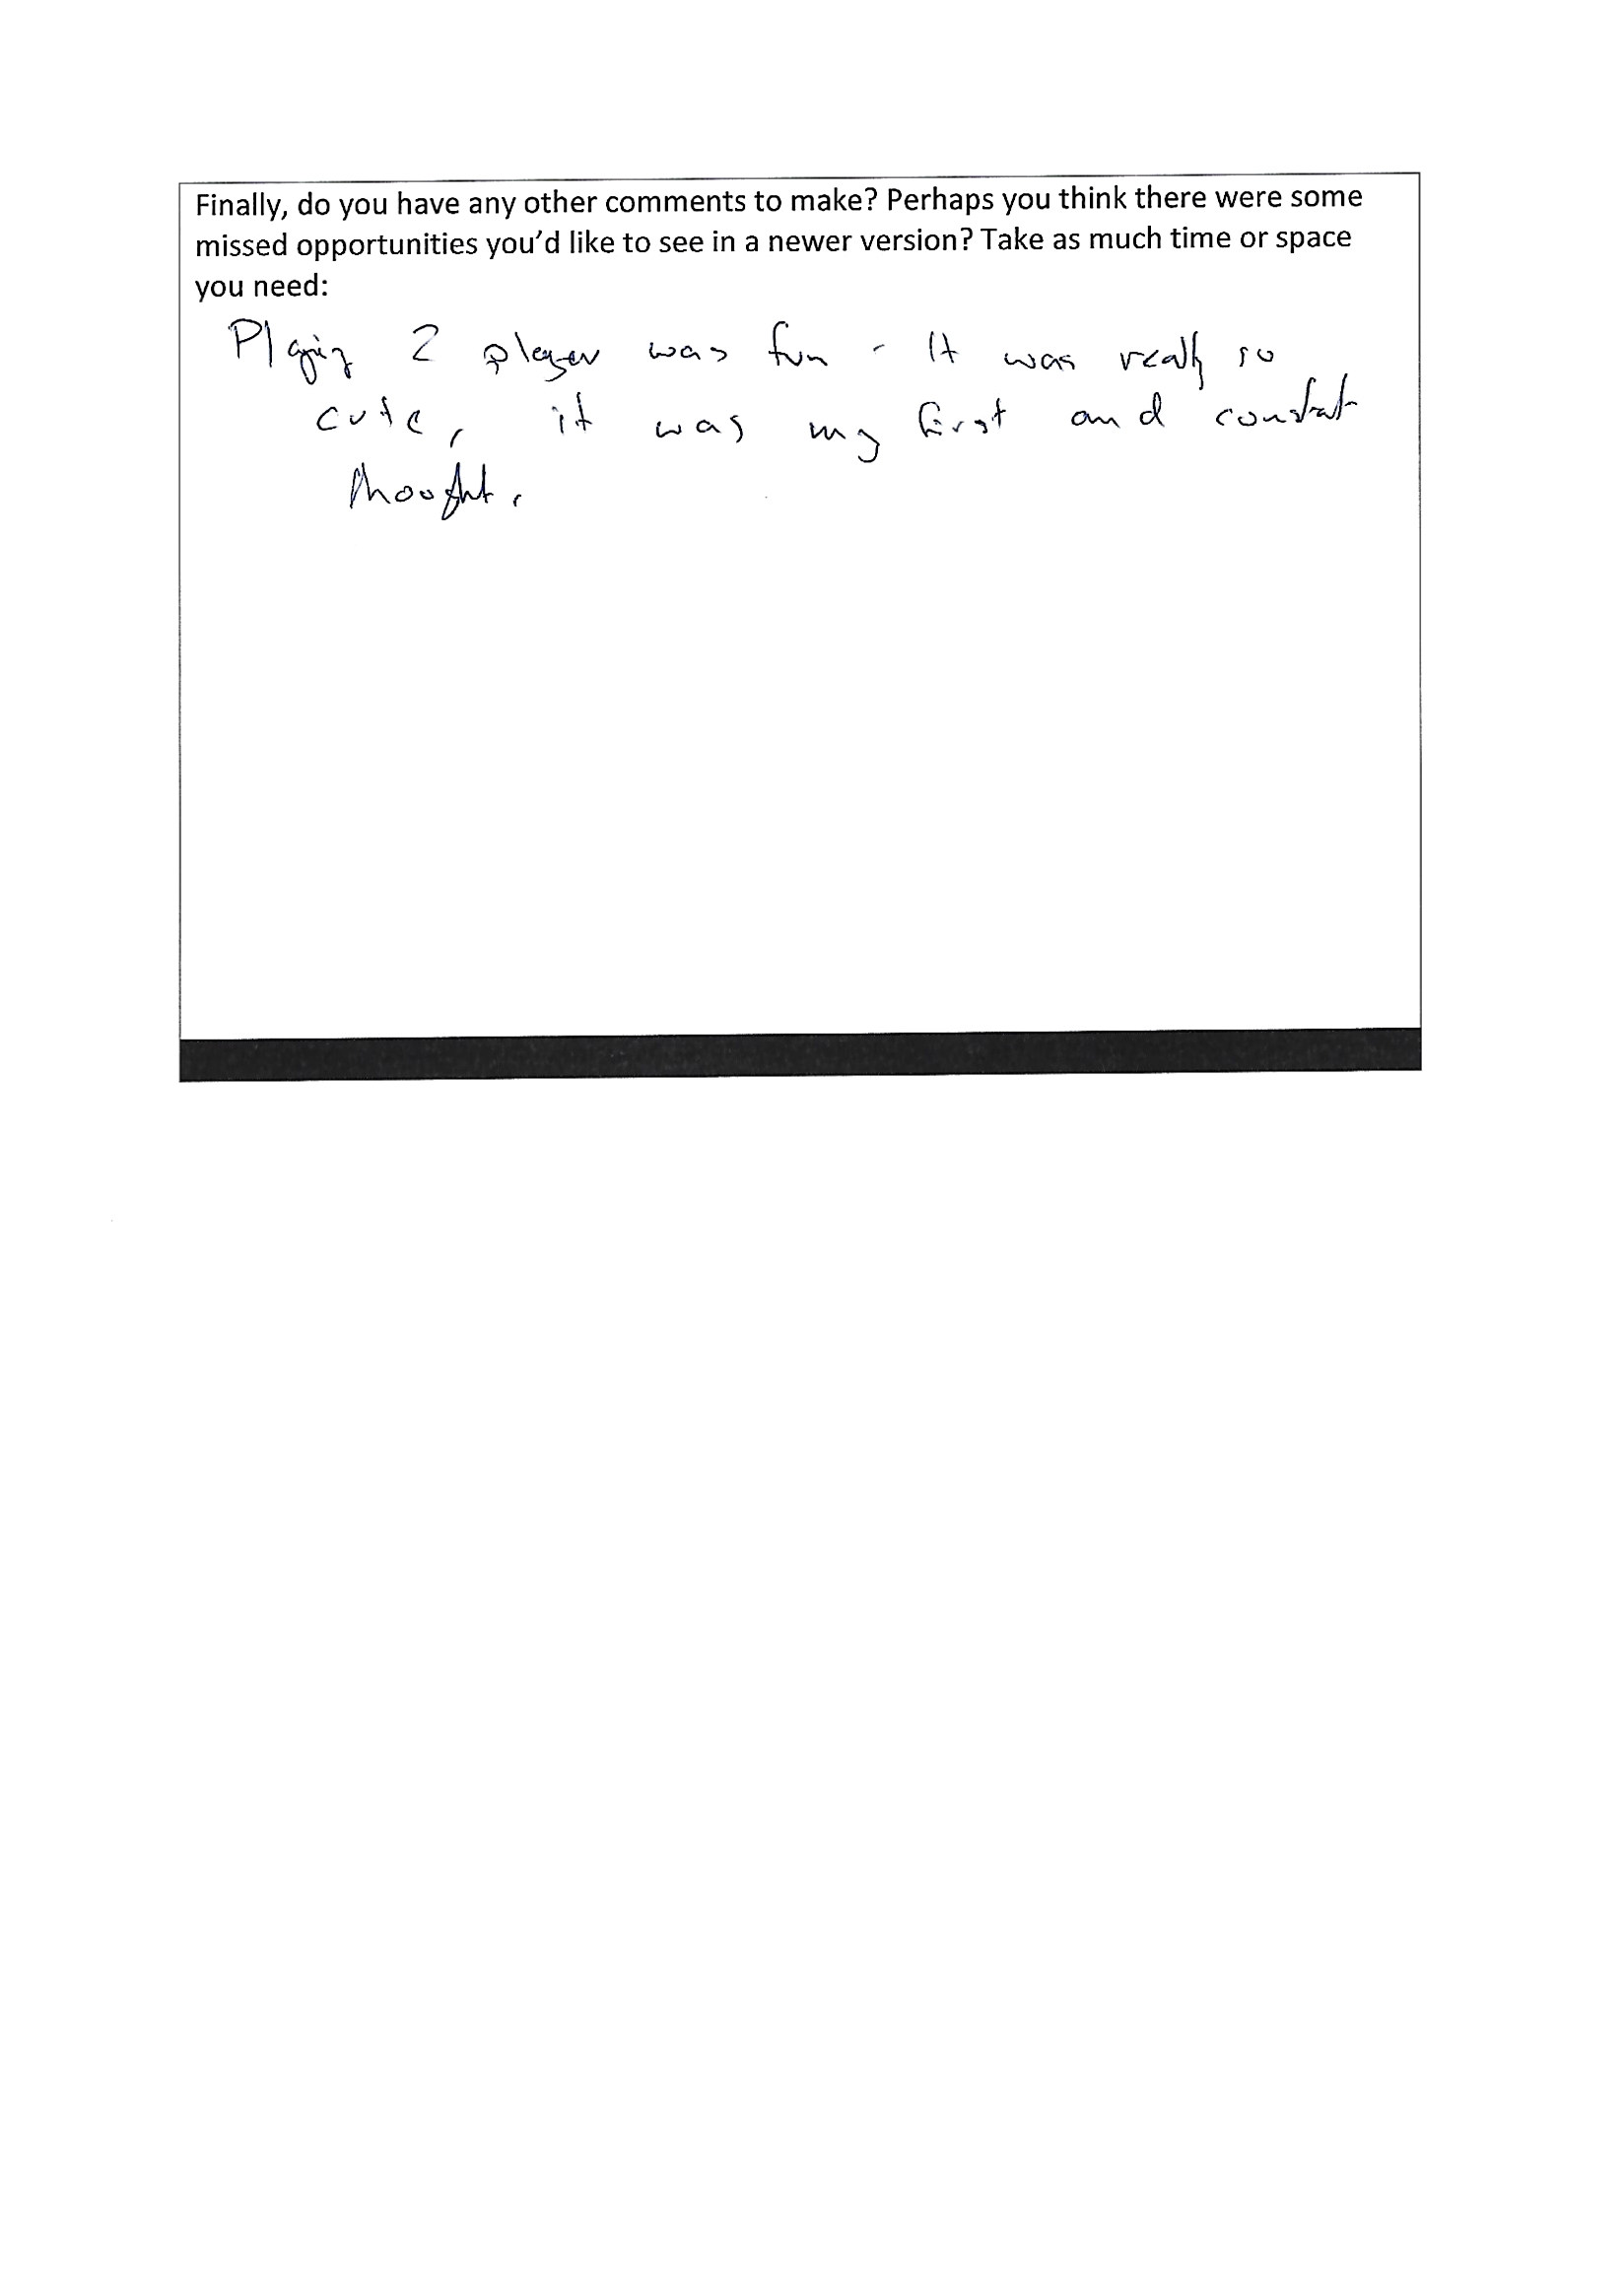 Finally, do you have any other comments to make? Perhaps you think there were some
missed opportunities you'd like to see in a newer version? Take as much time or space
you need:
Playing 2 player was fun - It was really so
cute, it was my first and constant
thought.